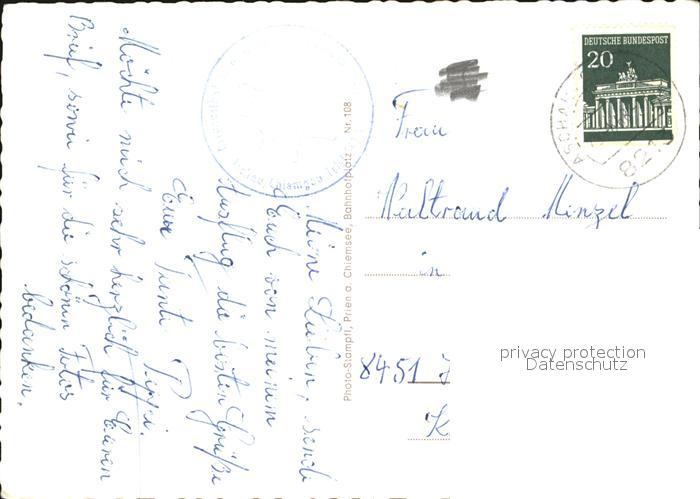 Meine Lieben, sende
Euch von meinem
Ausflug die besten Grüße
Eure Tante Peppi.
Möchte mich sehr herzlich für Euren
Brief, sowie für die schönen Fotos
bedanken.
Photo-Stampfl, Prien a. Chiemsee, Bahnhofplatz Nr. 108
DEUTSCHE BUNDESPOST
20
ASCHAU
821
Frau
Waltraud Minzel
in
8451
K
privacy protection
Datenschutz